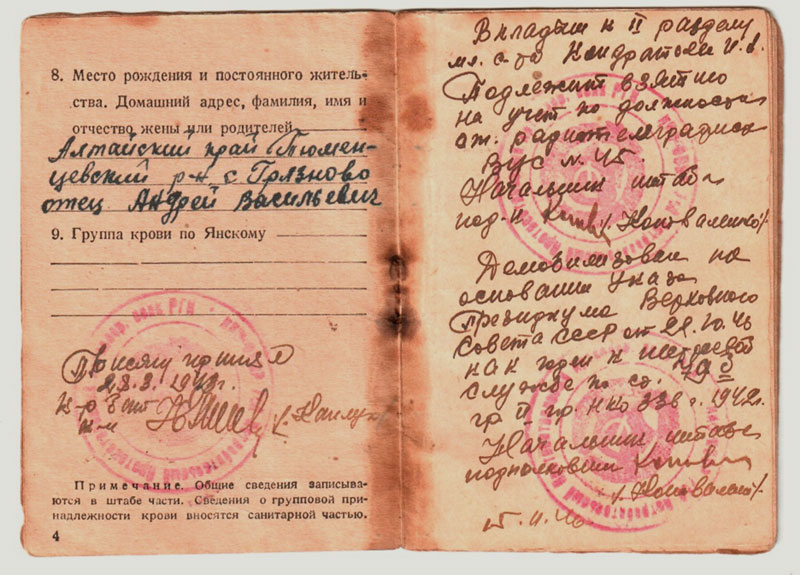 8. Место рождения и постоянного житель-
ства. Домашний адрес, фамилия, имя и
отчество жены или родителей
Алтайский край Тюмен-
цевский р-н с Грязново
отец Андрей Васильевич
9. Группа крови по Янскому
Присягу принял
1943г.
Примечание. Общие сведения записыва-
ются в штабе части. Сведения о групповой при-
надлежности крови вносятся санитарной частью.
4
Вкладыш к II разделу
мл. с-та Кондратьев И. А.
Подлежит взятию
на учет по должности
ст. радиотелеграфист
ВУС №45.
Начальник штаба
под-к /Коноваленко/
Демобилизован на
основании Указа
Президиума Верховного
Совета СССР от
как годен к нестроевой
службе по ст.
гр II пр. НКО 336 1942г.
Начальник штаба
подполковник
/Коноваленко/
15.11.46